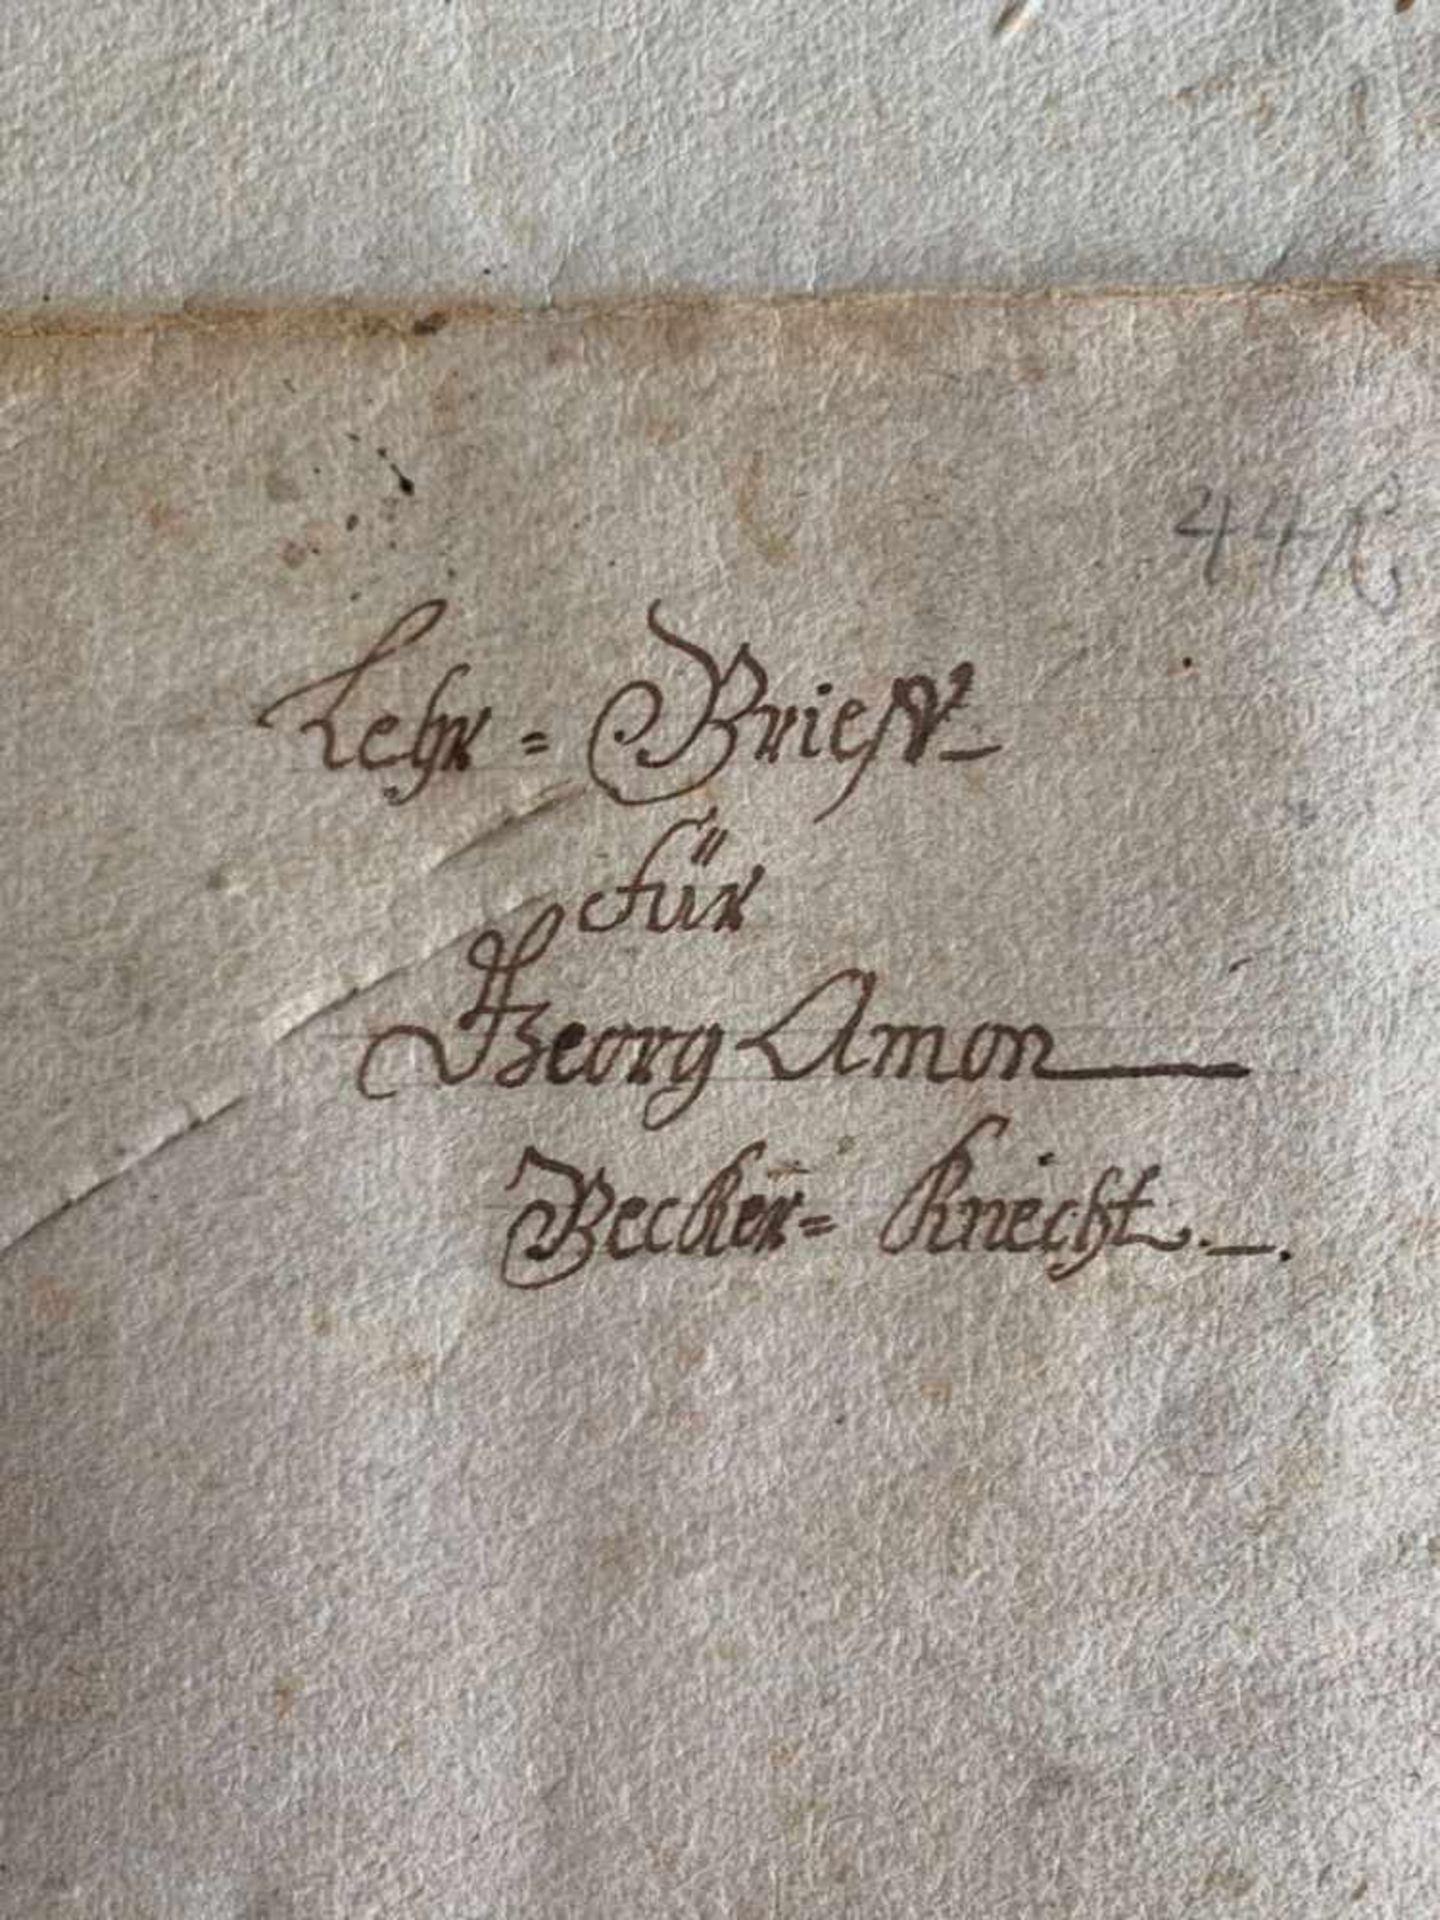 Lehr = Brieff
für
Georg Amon
Becker = Knecht.